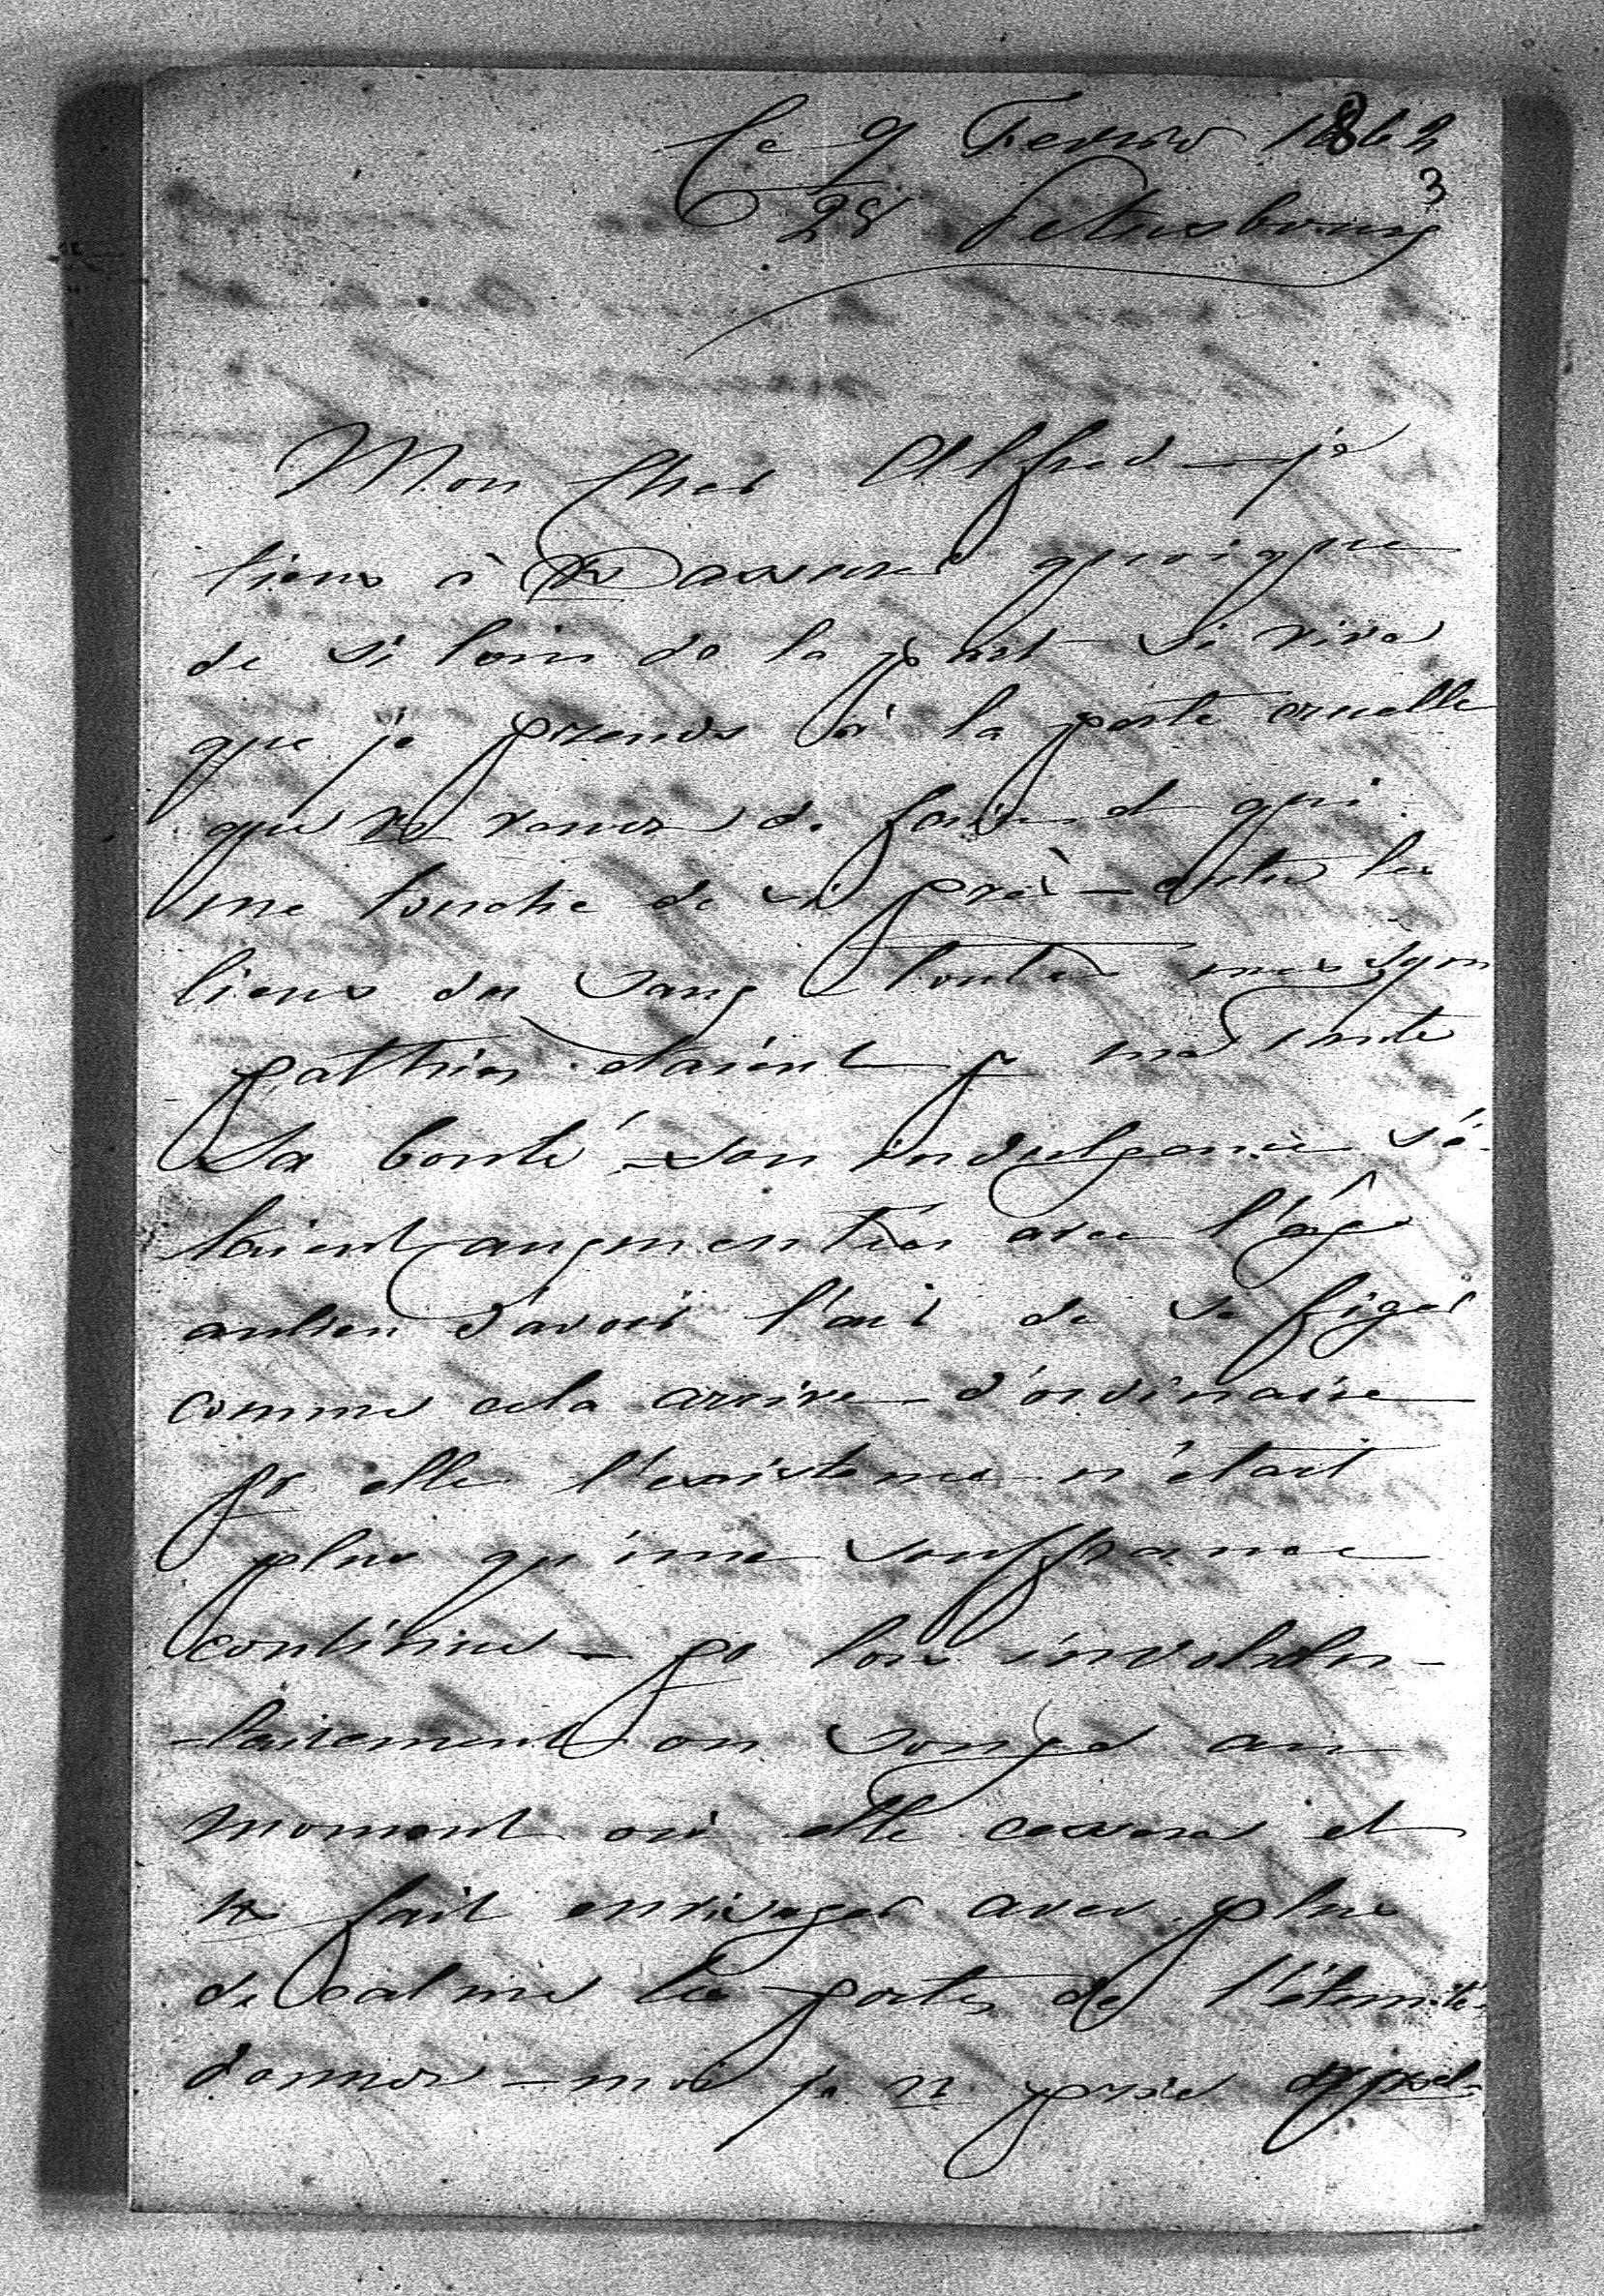 Ce 9 Fevrier 1863
28 Petersbourg
3
Mon cher Alfred — je
tiens à vs assurer quoique
de si loin de la part si vive
que je prends à la perte cruelle
que vs venez de faire et qui
me touche de si près — outre les
liens du sang toutes mes sym
pathies étaient pr ma tante
Sa bonté — son indulgence s'é-
taient augmentées avec l'âge
aulieu d'avoir l'air de se figer
comme cela arrive d'ordinaire
pr elle l'existence n'était
plus qu'une souffrance
continue — pr lors involon-
-tairement on songe au
moment où elle cessera et
vs fait envisager avec plus
de calme les portes de l'éternité
donnez-moi je vs prie